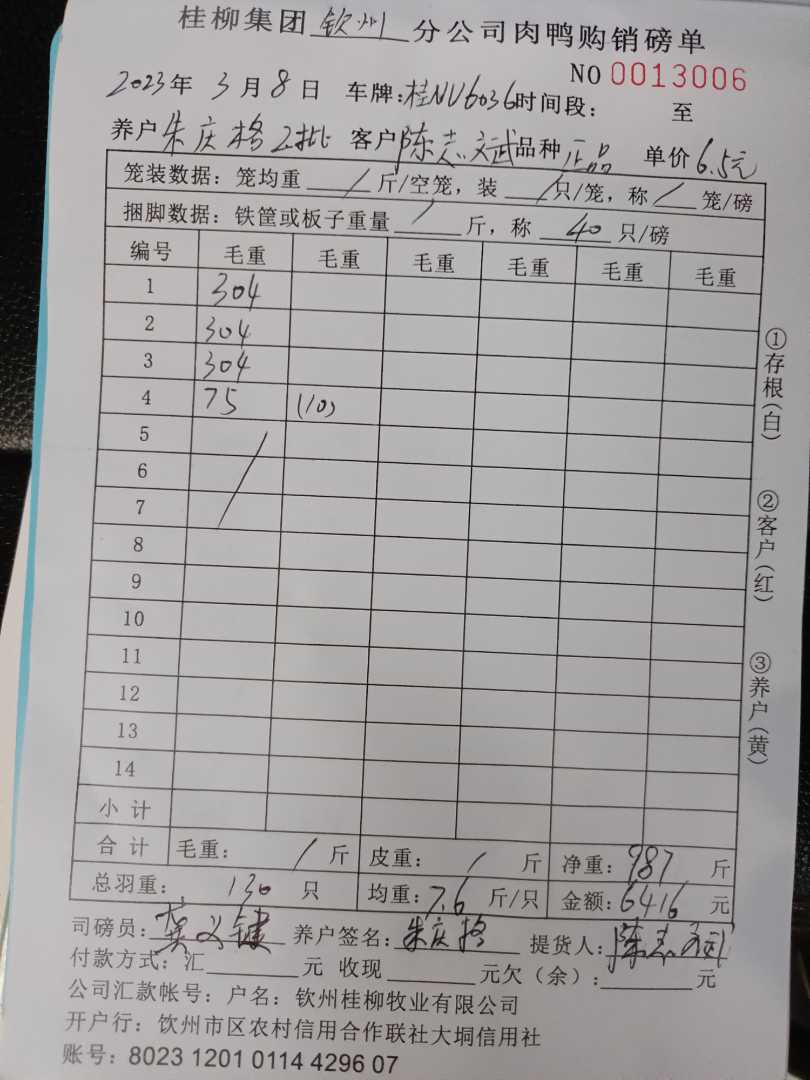 桂柳集团 钦州 分公司肉鸭购销磅单
NO 0013006
2023年 3月 8日 车牌:桂NU6036时间段: 至
养户 朱庆格 2批 客户 陈志斌 品种 正品 单价 6.5元
笼装数据: 笼均重 / 斤/空笼, 装 / 只/笼, 称 / 笼/磅
捆脚数据: 铁筐或板子重量 / 斤, 称 40 只/磅
编号 毛重 毛重 毛重 毛重 毛重 毛重
1 304
2 304
3 304
4 75 (10)
5
6
7
8
9
10
11
12
13
14
小 计
合 计 毛重: / 斤 皮重: / 斤 净重: 987 斤
总羽重: 130 只 均重: 7.6 斤/只 金额: 6416 元
司磅员: 养户签名: 朱庆格 提货人: 陈志斌
付款方式: 汇 元 收现 元欠(余): 元
公司汇款帐号: 户名: 钦州桂柳牧业有限公司
开户行: 钦州市区农村信用合作联社大垌信用社
账号: 8023 1201 0114 4296 07
①存根(白)
②客户(红)
③养户(黄)